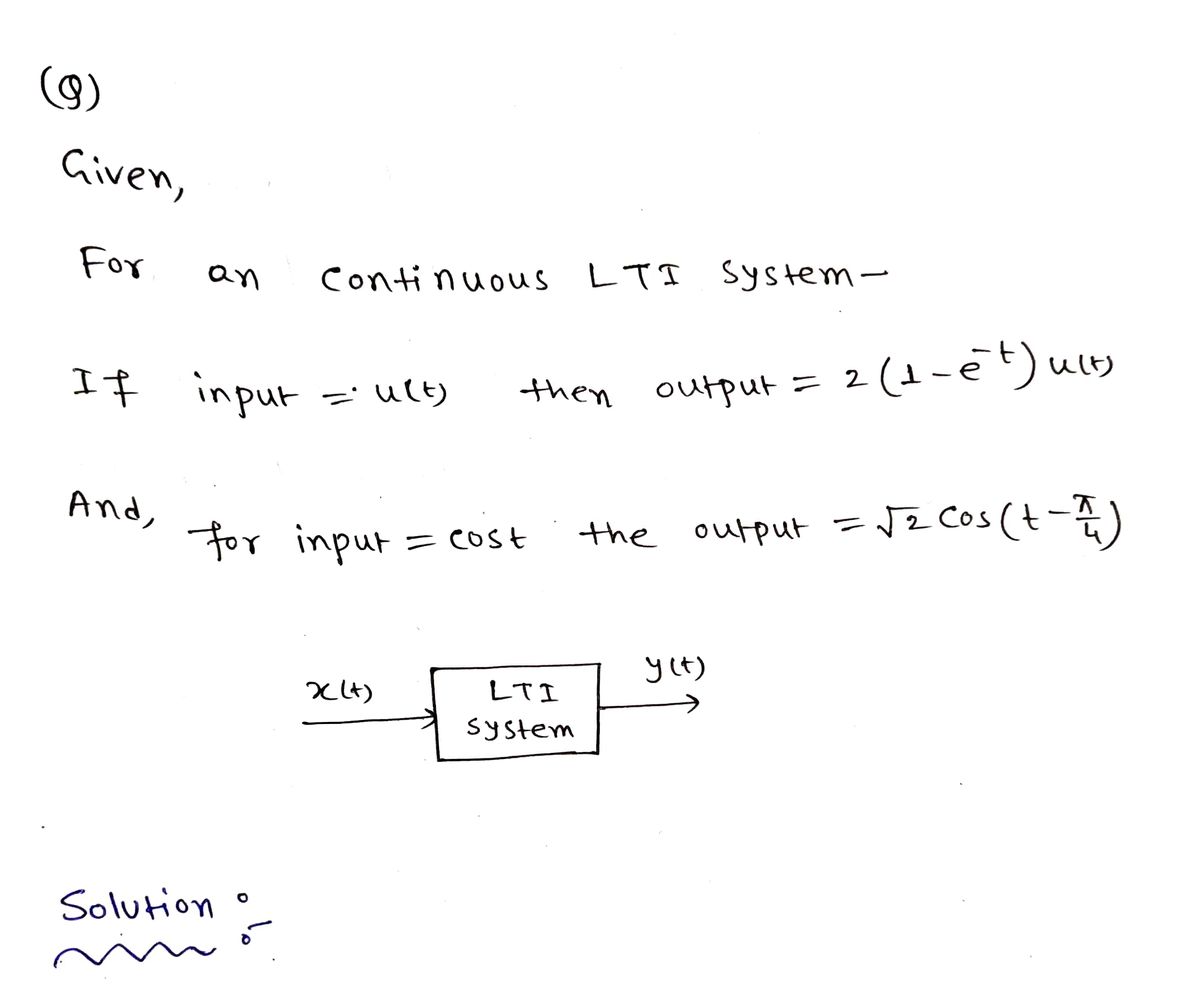 (Q)
Given,
For an continuous LTI system-
If input = u(t) then output = 2(1-e^-t)u(t)
And, for input = cost the output = √2 cos(t-π/4)
x(t)
LTI
system
y(t)
Solution :-